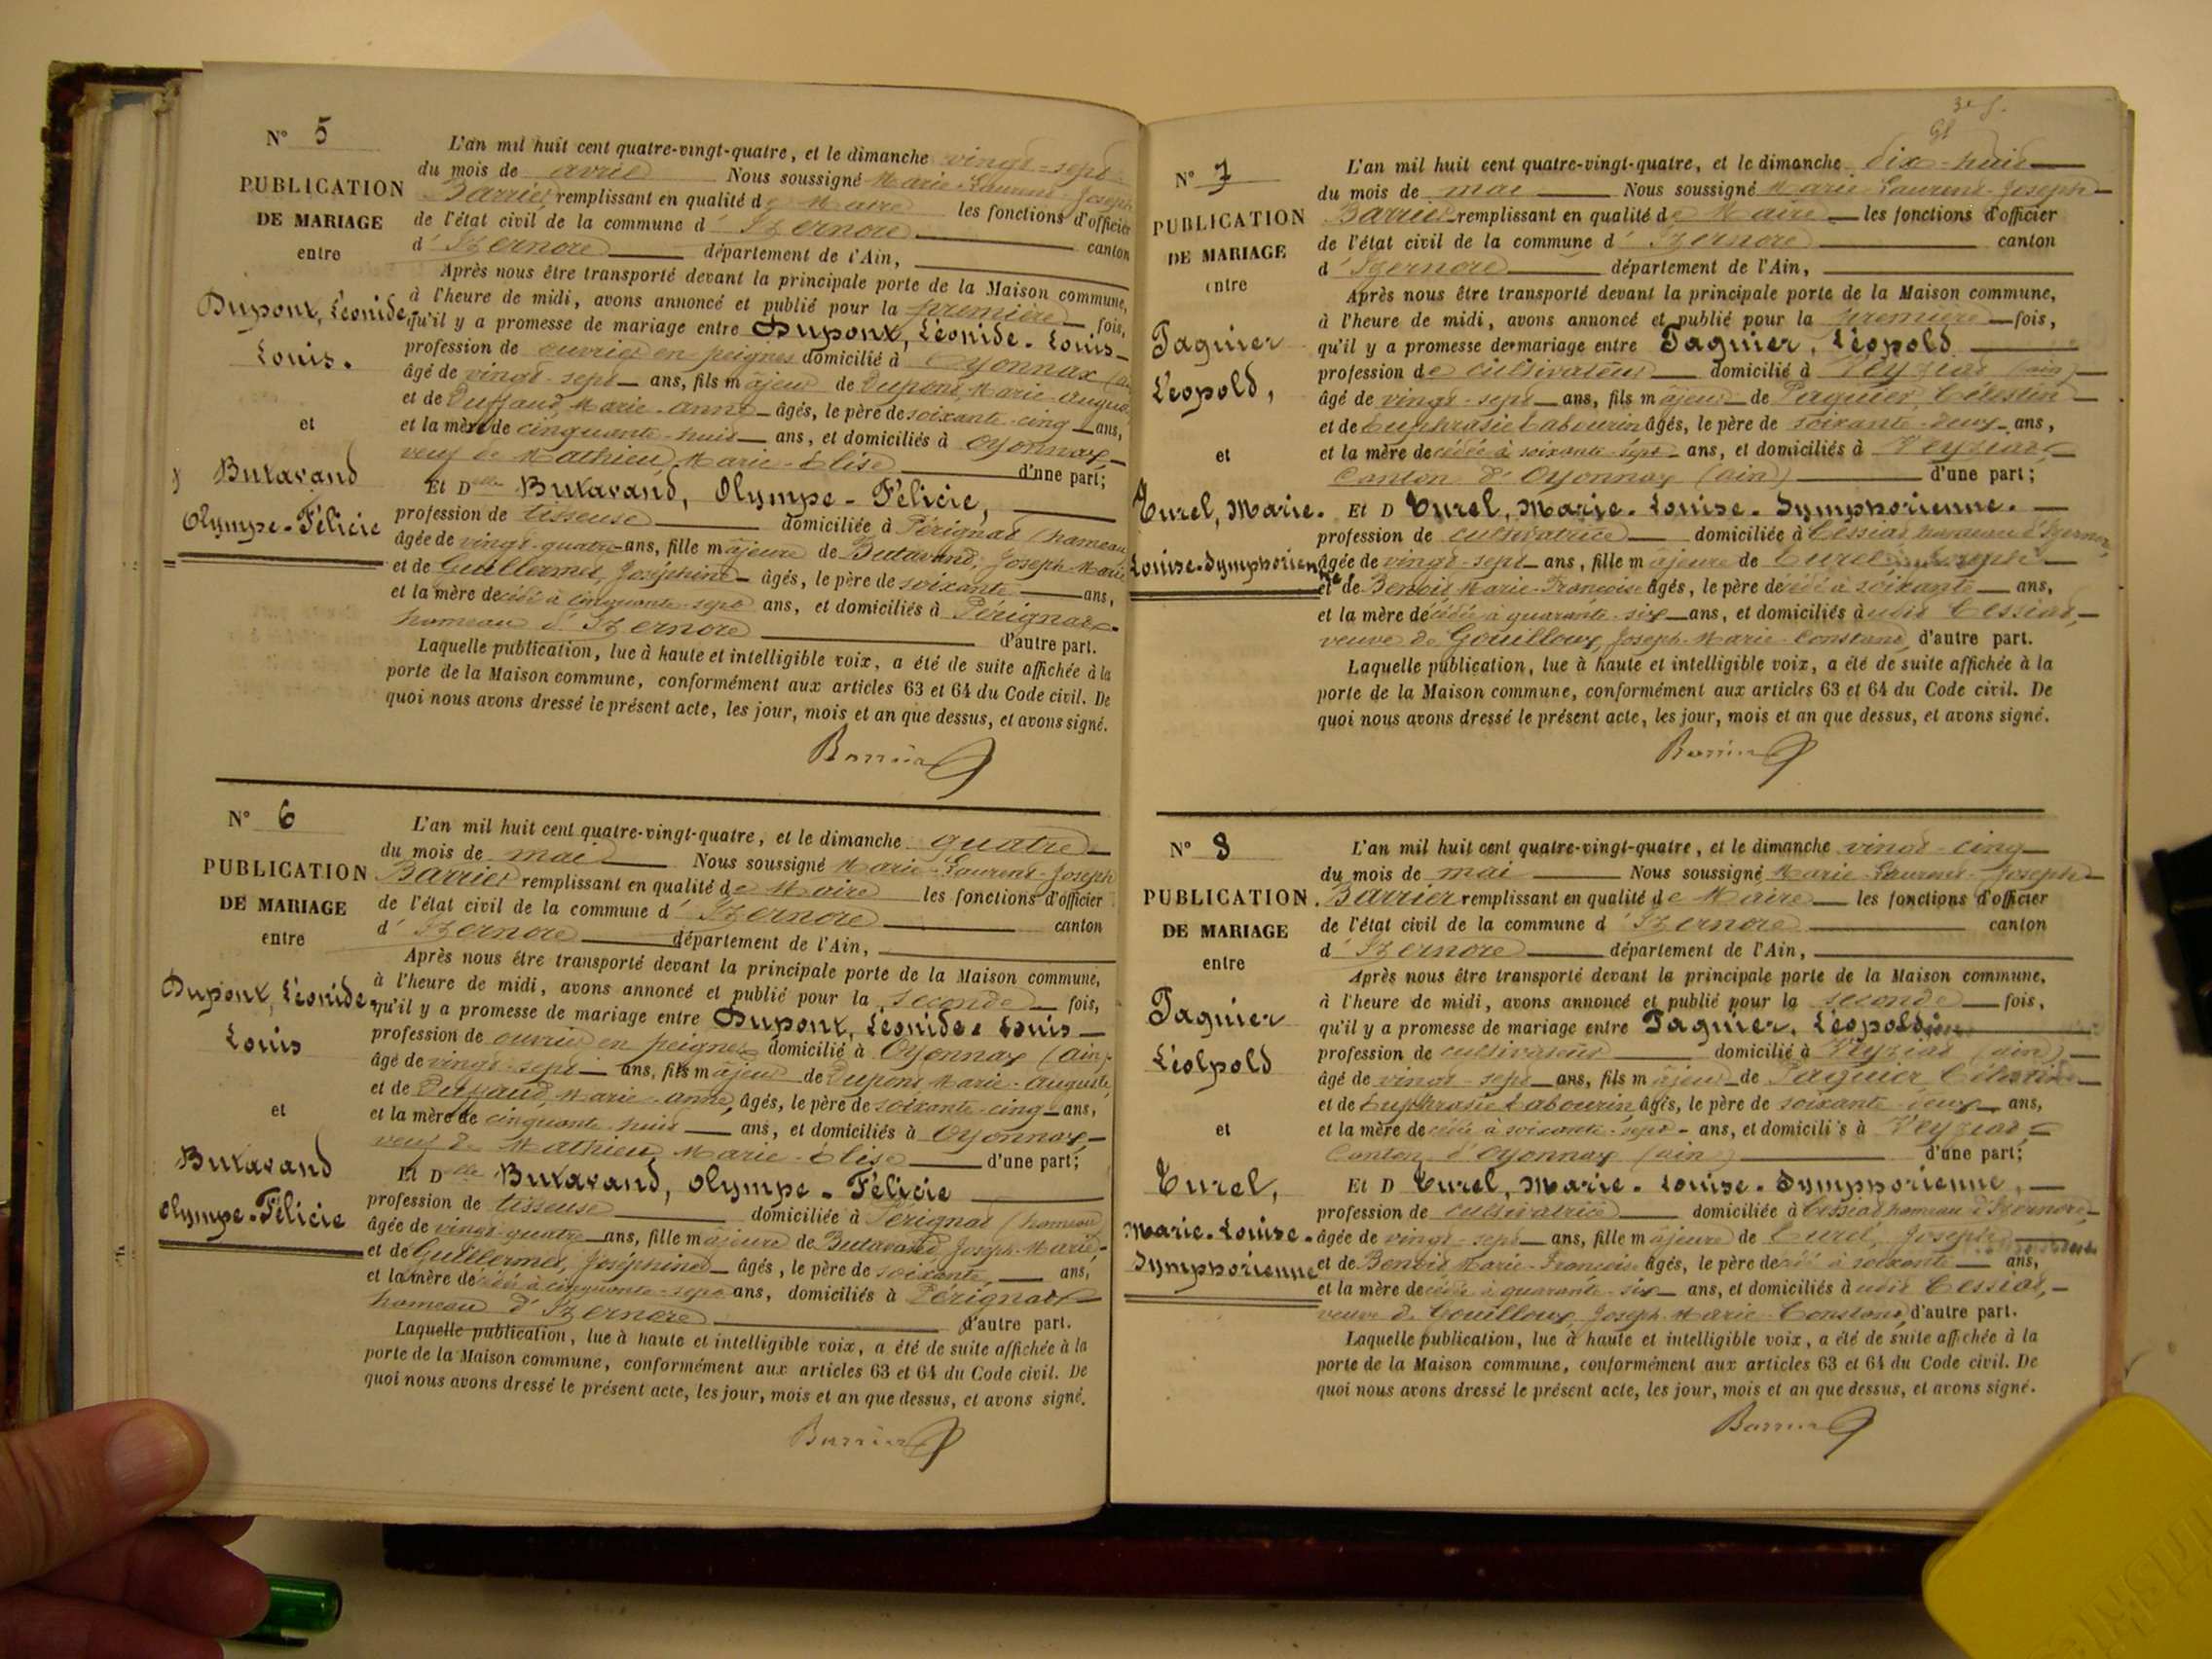 N° 5
PUBLICATION
DE MARIAGE
entre
Dupont, Léonide
Louis.
et
Butavand
Olympe-Félicie
L'an mil huit cent quatre-vingt-quatre, et le dimanche vingt-sept
du mois de avril Nous soussigné Marie-Laurent Joseph
Barrier remplissant en qualité de Maire les fonctions d'officier
de l'état civil de la commune d'Izernore canton
d'Izernore département de l'Ain,
Après nous être transporté devant la principale porte de la Maison commune,
à l'heure de midi, avons annoncé et publié pour la première fois,
qu'il y a promesse de mariage entre Dupont, Léonide-Louis
profession de ouvrier en peignes domicilié à Oyonnax
âgé de vingt-sept ans, fils majeur de Dupont, Marie-Auguste
et de Duffaud, Marie-Anne âgés, le père de soixante-cinq ans,
et la mère de cinquante-huit ans, et domiciliés à Oyonnax
veuf de Mathieu Marie-Elise d'une part;
Et Delle Butavand, Olympe-Félicie,
profession de tisseuse domiciliée à Pérignat (hameau
âgée de vingt-quatre ans, fille majeure de Butavand, Joseph Marie
et de Guillermet, Joséphine âgés, le père de soixante ans,
et la mère décédée à cinquante-sept ans, et domiciliés à Pérignat
hameau d'Izernore d'autre part.
Laquelle publication, lue à haute et intelligible voix, a été de suite affichée à la
porte de la Maison commune, conformément aux articles 63 et 64 du Code civil. De
quoi nous avons dressé le présent acte, les jour, mois et an que dessus, et avons signé.
Barrier
N° 6
PUBLICATION
DE MARIAGE
entre
Dupont, Léonide
Louis
et
Butavand
Olympe-Félicie
L'an mil huit cent quatre-vingt-quatre, et le dimanche quatre
du mois de mai Nous soussigné Marie-Laurent-Joseph
Barrier remplissant en qualité de Maire les fonctions d'officier
de l'état civil de la commune d'Izernore canton
d'Izernore département de l'Ain,
Après nous être transporté devant la principale porte de la Maison commune,
à l'heure de midi, avons annoncé et publié pour la seconde fois,
qu'il y a promesse de mariage entre Dupont, Léonide Louis
profession de ouvrier en peignes domicilié à Oyonnax (ain)
âgé de vingt-sept ans, fils majeur de Dupont Marie-Auguste,
et de Duffaud, Marie-Anne, âgés, le père de soixante-cinq ans,
et la mère de cinquante-huit ans, et domiciliés à Oyonnax,
veuf de Mathieu Marie-Elise d'une part;
Et Delle Butavand, Olympe-Félicie
profession de tisseuse domiciliée à Pérignat (hameau)
âgée de vingt-quatre ans, fille majeure de Butavand Joseph-Marie
et de Guillermet, Joséphine âgés, le père de soixante, ans,
et la mère décédée à cinquante-sept ans, domiciliés à Pérignat
hameau d'Izernore d'autre part.
Laquelle publication, lue à haute et intelligible voix, a été de suite affichée à la
porte de la Maison commune, conformément aux articles 63 et 64 du Code civil. De
quoi nous avons dressé le présent acte, les jour, mois et an que dessus, et avons signé.
Barrier
3e f.
N° 7
PUBLICATION
DE MARIAGE
entre
Paguier
Léopold,
et
Turel, Marie.
Louise-Symphorienne
L'an mil huit cent quatre-vingt-quatre, et le dimanche dix-huit
du mois de mai Nous soussigné Marie-Laurent-Joseph
Barrier remplissant en qualité de Maire les fonctions d'officier
de l'état civil de la commune d'Izernore canton
d'Izernore département de l'Ain,
Après nous être transporté devant la principale porte de la Maison commune,
à l'heure de midi, avons annoncé et publié pour la première fois,
qu'il y a promesse de mariage entre Paguier, Léopold
profession de cultivateur domicilié à Veyziat (ain)
âgé de vingt-sept ans, fils majeur de Paguier Célestin
et de Euphrasie Labourin âgés, le père de soixante-deux ans,
et la mère décédée à soixante-sept ans, et domiciliés à Veyziat
Canton d'Oyonnax (ain) d'une part;
Et D Turel, Marie-Louise-Symphorienne.
profession de cultivatrice domiciliée à Cessiat hameau d'Izernore
âgée de vingt-sept ans, fille majeure de Turel Joseph
et de Benoit Marie-Françoise âgés, le père décédé à soixante ans,
et la mère décédée à quarante-six ans, et domiciliés audit Cessiat,
veuve de Gouilloux, Joseph-Marie-Constant, d'autre part.
Laquelle publication, lue à haute et intelligible voix, a été de suite affichée à la
porte de la Maison commune, conformément aux articles 63 et 64 du Code civil. De
quoi nous avons dressé le présent acte, les jour, mois et an que dessus, et avons signé.
Barrier
N° 8
PUBLICATION
DE MARIAGE
entre
Paguier
Léolpold
et
Turel,
Marie-Louise-
Symphorienne
L'an mil huit cent quatre-vingt-quatre, et le dimanche vingt-cinq
du mois de mai Nous soussigné Marie-Laurent-Joseph
Barrier remplissant en qualité de Maire les fonctions d'officier
de l'état civil de la commune d'Izernore canton
d'Izernore département de l'Ain,
Après nous être transporté devant la principale porte de la Maison commune,
à l'heure de midi, avons annoncé et publié pour la seconde fois,
qu'il y a promesse de mariage entre Paguier, Léopold
profession de cultivateur domicilié à Veyziat (ain)
âgé de vingt-sept ans, fils majeur de Paguier Célestin
et de Euphrasie Labourin, âgés, le père de soixante-deux ans,
et la mère décédée à soixante-sept ans, et domiciliés à Veyziat
Canton d'Oyonnax (ain) d'une part;
Et D Turel, Marie-Louise-Symphorienne,
profession de cultivatrice domiciliée à Cessiat hameau d'Izernore
âgée de vingt-sept ans, fille majeure de Turel, Joseph
et de Benoit Marie-Françoise âgés, le père décédé à soixante ans,
et la mère décédée à quarante-six ans, et domiciliés audit Cessiat,
veuve de Gouilloux, Joseph-Marie-Constant, d'autre part.
Laquelle publication, lue à haute et intelligible voix, a été de suite affichée à la
porte de la Maison commune, conformément aux articles 63 et 64 du Code civil. De
quoi nous avons dressé le présent acte, les jour, mois et an que dessus, et avons signé.
Barrier